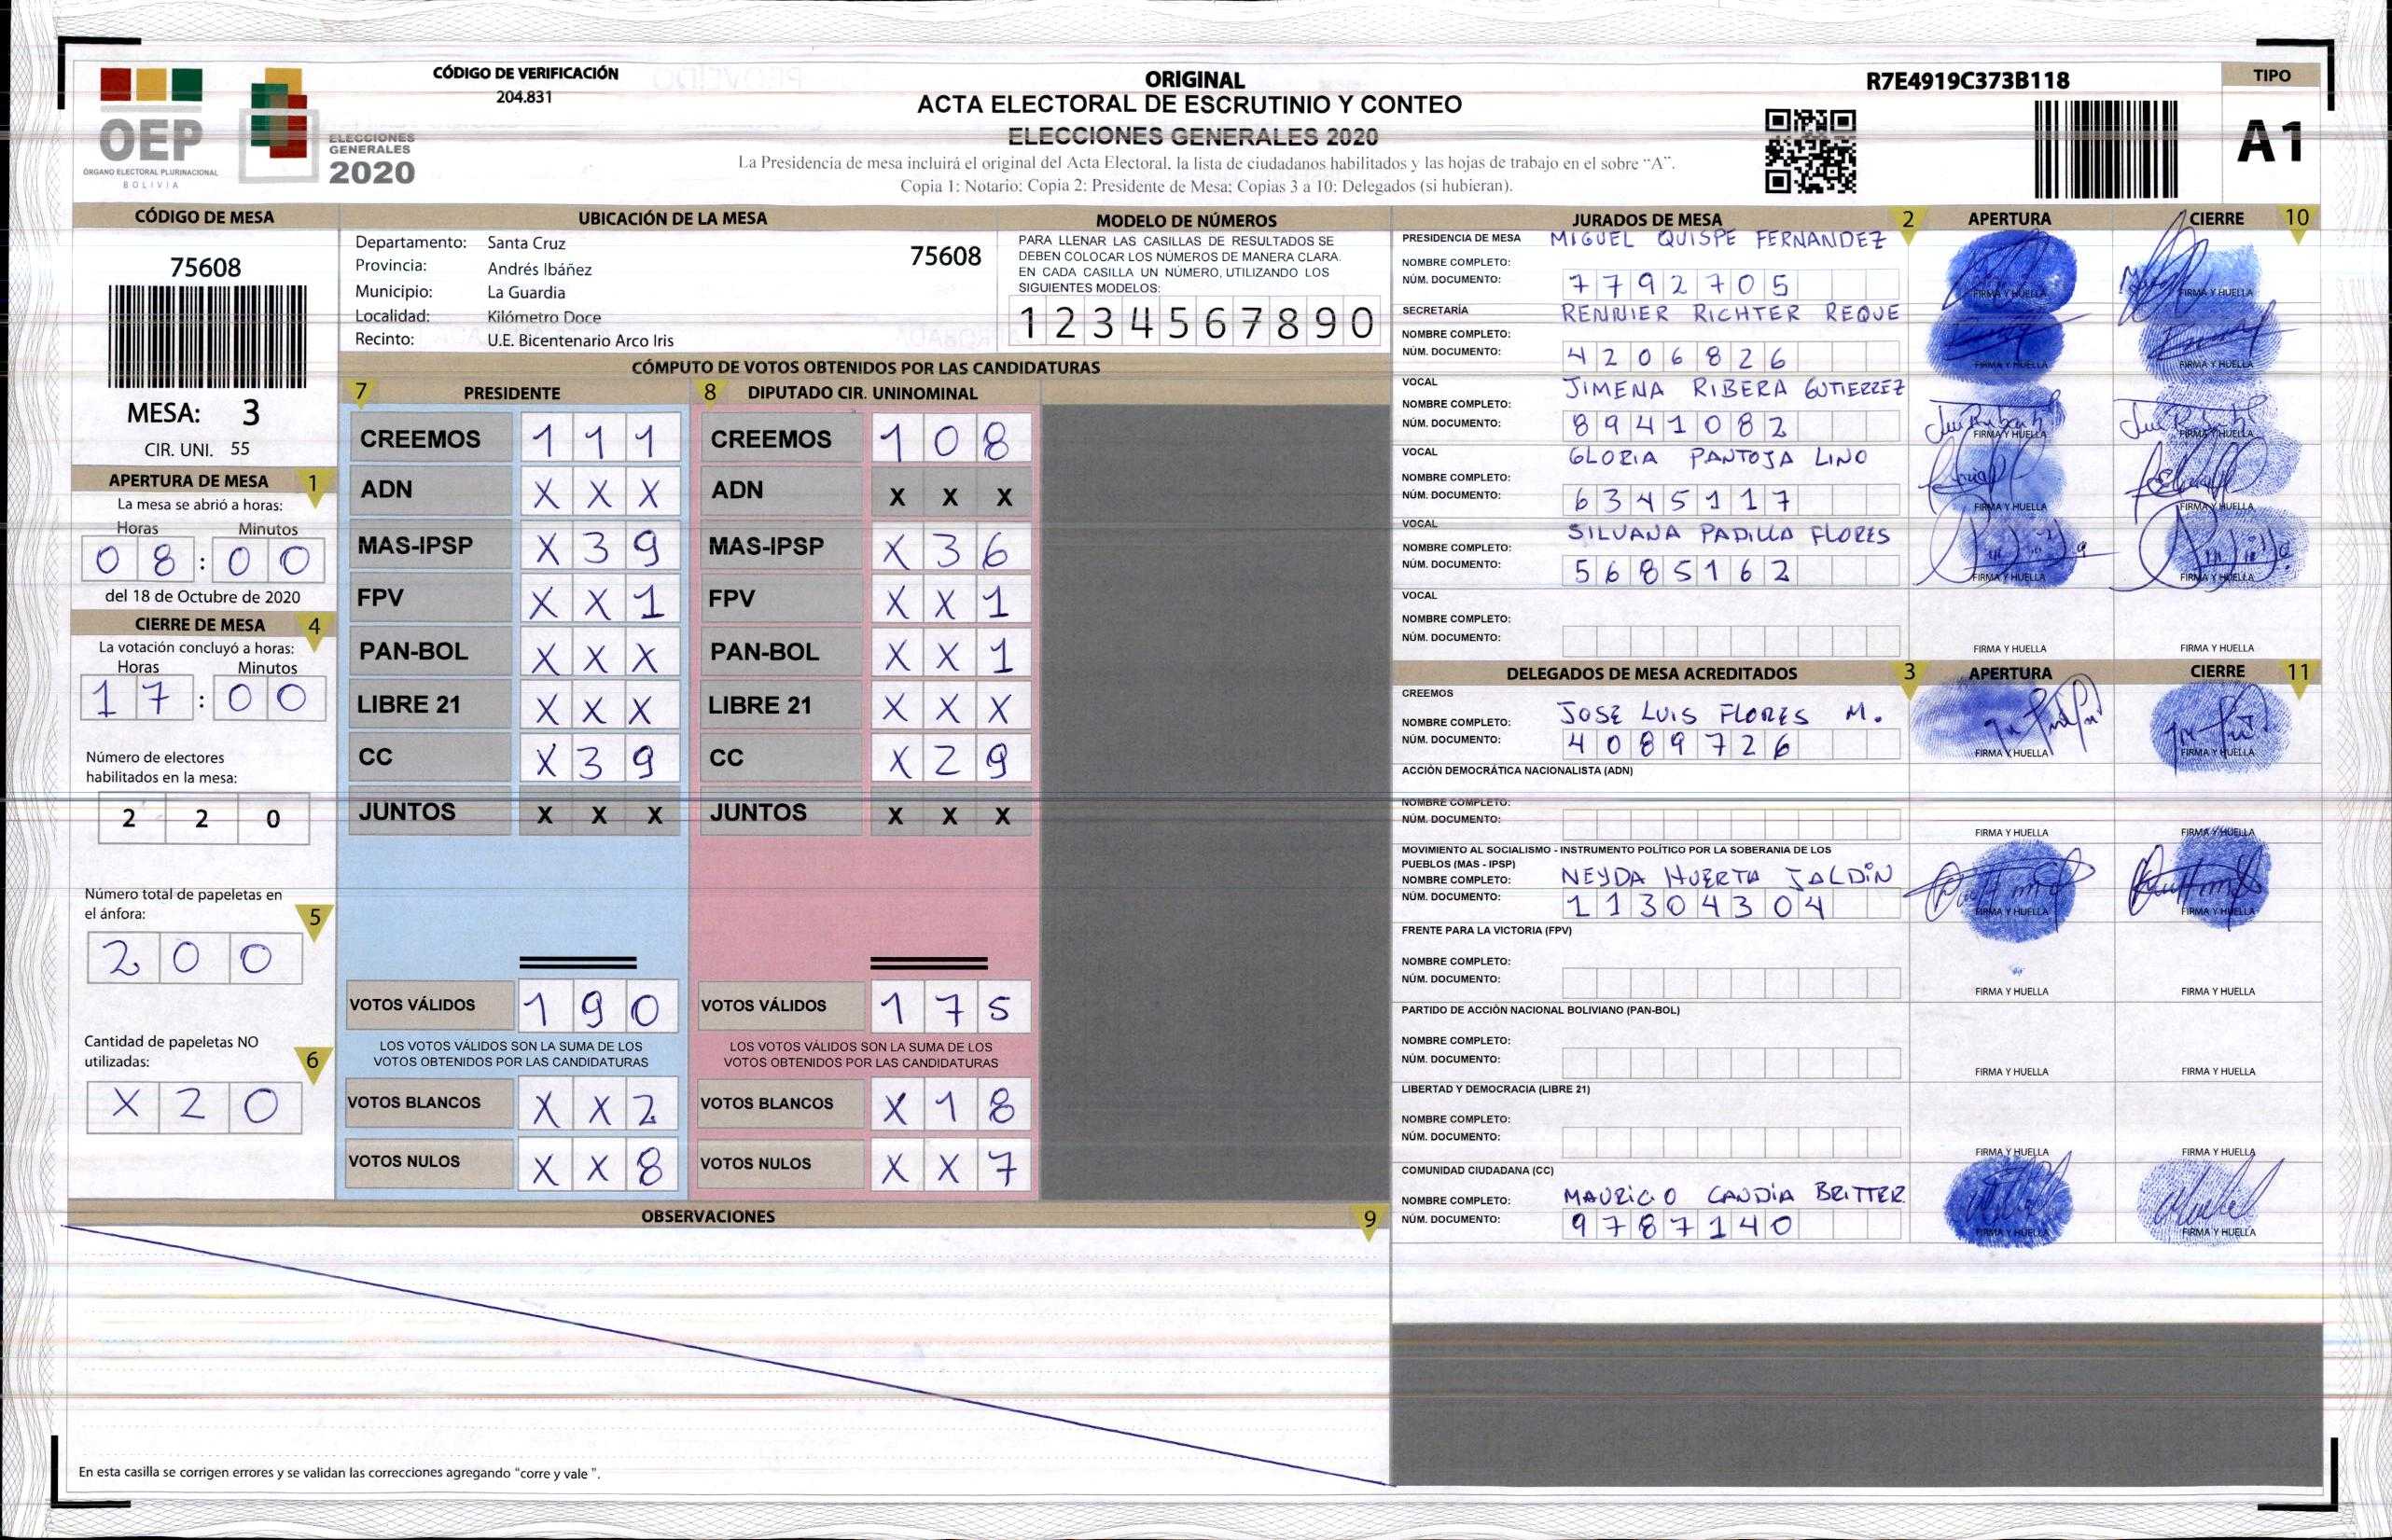 CÓDIGO DE VERIFICACIÓN
204.831
OEP
ÓRGANO ELECTORAL PLURINACIONAL
BOLIVIA
ELECCIONES
GENERALES
2020
ORIGINAL
ACTA ELECTORAL DE ESCRUTINIO Y CONTEO
ELECCIONES GENERALES 2020
La Presidencia de mesa incluirá el original del Acta Electoral, la lista de ciudadanos habilitados y las hojas de trabajo en el sobre “A”.
Copia 1: Notario; Copia 2: Presidente de Mesa; Copias 3 a 10: Delegados (si hubieran).
R7E4919C373B118
TIPO
A1
CÓDIGO DE MESA
75608
MESA: 3
CIR. UNI. 55
APERTURA DE MESA 1
La mesa se abrió a horas:
Horas Minutos
0 8 : 0 0
del 18 de Octubre de 2020
CIERRE DE MESA 4
La votación concluyó a horas:
Horas Minutos
1 7 : 0 0
Número de electores
habilitados en la mesa:
2 2 0
Número total de papeletas en
el ánfora: 5
2 0 0
Cantidad de papeletas NO
utilizadas: 6
X 2 0
UBICACIÓN DE LA MESA
Departamento: Santa Cruz 75608
Provincia: Andrés Ibáñez
Municipio: La Guardia
Localidad: Kilómetro Doce
Recinto: U.E. Bicentenario Arco Iris
MODELO DE NÚMEROS
PARA LLENAR LAS CASILLAS DE RESULTADOS SE
DEBEN COLOCAR LOS NÚMEROS DE MANERA CLARA.
EN CADA CASILLA UN NÚMERO, UTILIZANDO LOS
SIGUIENTES MODELOS:
1 2 3 4 5 6 7 8 9 0
CÓMPUTO DE VOTOS OBTENIDOS POR LAS CANDIDATURAS
7 PRESIDENTE
CREEMOS 1 1 1
ADN X X X
MAS-IPSP X 3 9
FPV X X 1
PAN-BOL X X X
LIBRE 21 X X X
CC X 3 9
JUNTOS X X X
VOTOS VÁLIDOS 1 9 0
LOS VOTOS VÁLIDOS SON LA SUMA DE LOS
VOTOS OBTENIDOS POR LAS CANDIDATURAS
VOTOS BLANCOS X X 2
VOTOS NULOS X X 8
8 DIPUTADO CIR. UNINOMINAL
CREEMOS 1 0 8
ADN X X X
MAS-IPSP X 3 6
FPV X X 1
PAN-BOL X X 1
LIBRE 21 X X X
CC X 2 9
JUNTOS X X X
VOTOS VÁLIDOS 1 7 5
LOS VOTOS VÁLIDOS SON LA SUMA DE LOS
VOTOS OBTENIDOS POR LAS CANDIDATURAS
VOTOS BLANCOS X 1 8
VOTOS NULOS X X 7
OBSERVACIONES 9
En esta casilla se corrigen errores y se validan las correcciones agregando “corre y vale ”.
JURADOS DE MESA 2 APERTURA CIERRE 10
PRESIDENCIA DE MESA MIGUEL QUISPE FERNANDEZ
NOMBRE COMPLETO:
NÚM. DOCUMENTO: 7 7 9 2 7 0 5 FIRMA Y HUELLA FIRMA Y HUELLA
SECRETARÍA RENNIER RICHTER REQUE
NOMBRE COMPLETO:
NÚM. DOCUMENTO: 4 2 0 6 8 2 6 FIRMA Y HUELLA FIRMA Y HUELLA
VOCAL JIMENA RIBERA GUTIERREZ
NOMBRE COMPLETO:
NÚM. DOCUMENTO: 8 9 4 1 0 8 2 FIRMA Y HUELLA FIRMA Y HUELLA
VOCAL GLORIA PANTOJA LINO
NOMBRE COMPLETO:
NÚM. DOCUMENTO: 6 3 4 5 1 1 7 FIRMA Y HUELLA FIRMA Y HUELLA
VOCAL SILVANA PADILLA FLORES
NOMBRE COMPLETO:
NÚM. DOCUMENTO: 5 6 8 5 1 6 2 FIRMA Y HUELLA FIRMA Y HUELLA
VOCAL
NOMBRE COMPLETO:
NÚM. DOCUMENTO: FIRMA Y HUELLA FIRMA Y HUELLA
DELEGADOS DE MESA ACREDITADOS 3 APERTURA CIERRE 11
CREEMOS
NOMBRE COMPLETO: JOSE LUIS FLORES M.
NÚM. DOCUMENTO: 4 0 8 9 7 2 6 FIRMA Y HUELLA FIRMA Y HUELLA
ACCIÓN DEMOCRÁTICA NACIONALISTA (ADN)
NOMBRE COMPLETO:
NÚM. DOCUMENTO: FIRMA Y HUELLA FIRMA Y HUELLA
MOVIMIENTO AL SOCIALISMO - INSTRUMENTO POLÍTICO POR LA SOBERANIA DE LOS
PUEBLOS (MAS - IPSP)
NOMBRE COMPLETO: NEYDA HUERTA JALDIN
NÚM. DOCUMENTO: 1 1 3 0 4 3 0 4 FIRMA Y HUELLA FIRMA Y HUELLA
FRENTE PARA LA VICTORIA (FPV)
NOMBRE COMPLETO:
NÚM. DOCUMENTO: FIRMA Y HUELLA FIRMA Y HUELLA
PARTIDO DE ACCIÓN NACIONAL BOLIVIANO (PAN-BOL)
NOMBRE COMPLETO:
NÚM. DOCUMENTO: FIRMA Y HUELLA FIRMA Y HUELLA
LIBERTAD Y DEMOCRACIA (LIBRE 21)
NOMBRE COMPLETO:
NÚM. DOCUMENTO: FIRMA Y HUELLA FIRMA Y HUELLA
COMUNIDAD CIUDADANA (CC)
NOMBRE COMPLETO: MAURICIO CANDIA BRITTER
NÚM. DOCUMENTO: 9 7 8 7 1 4 0 FIRMA Y HUELLA FIRMA Y HUELLA